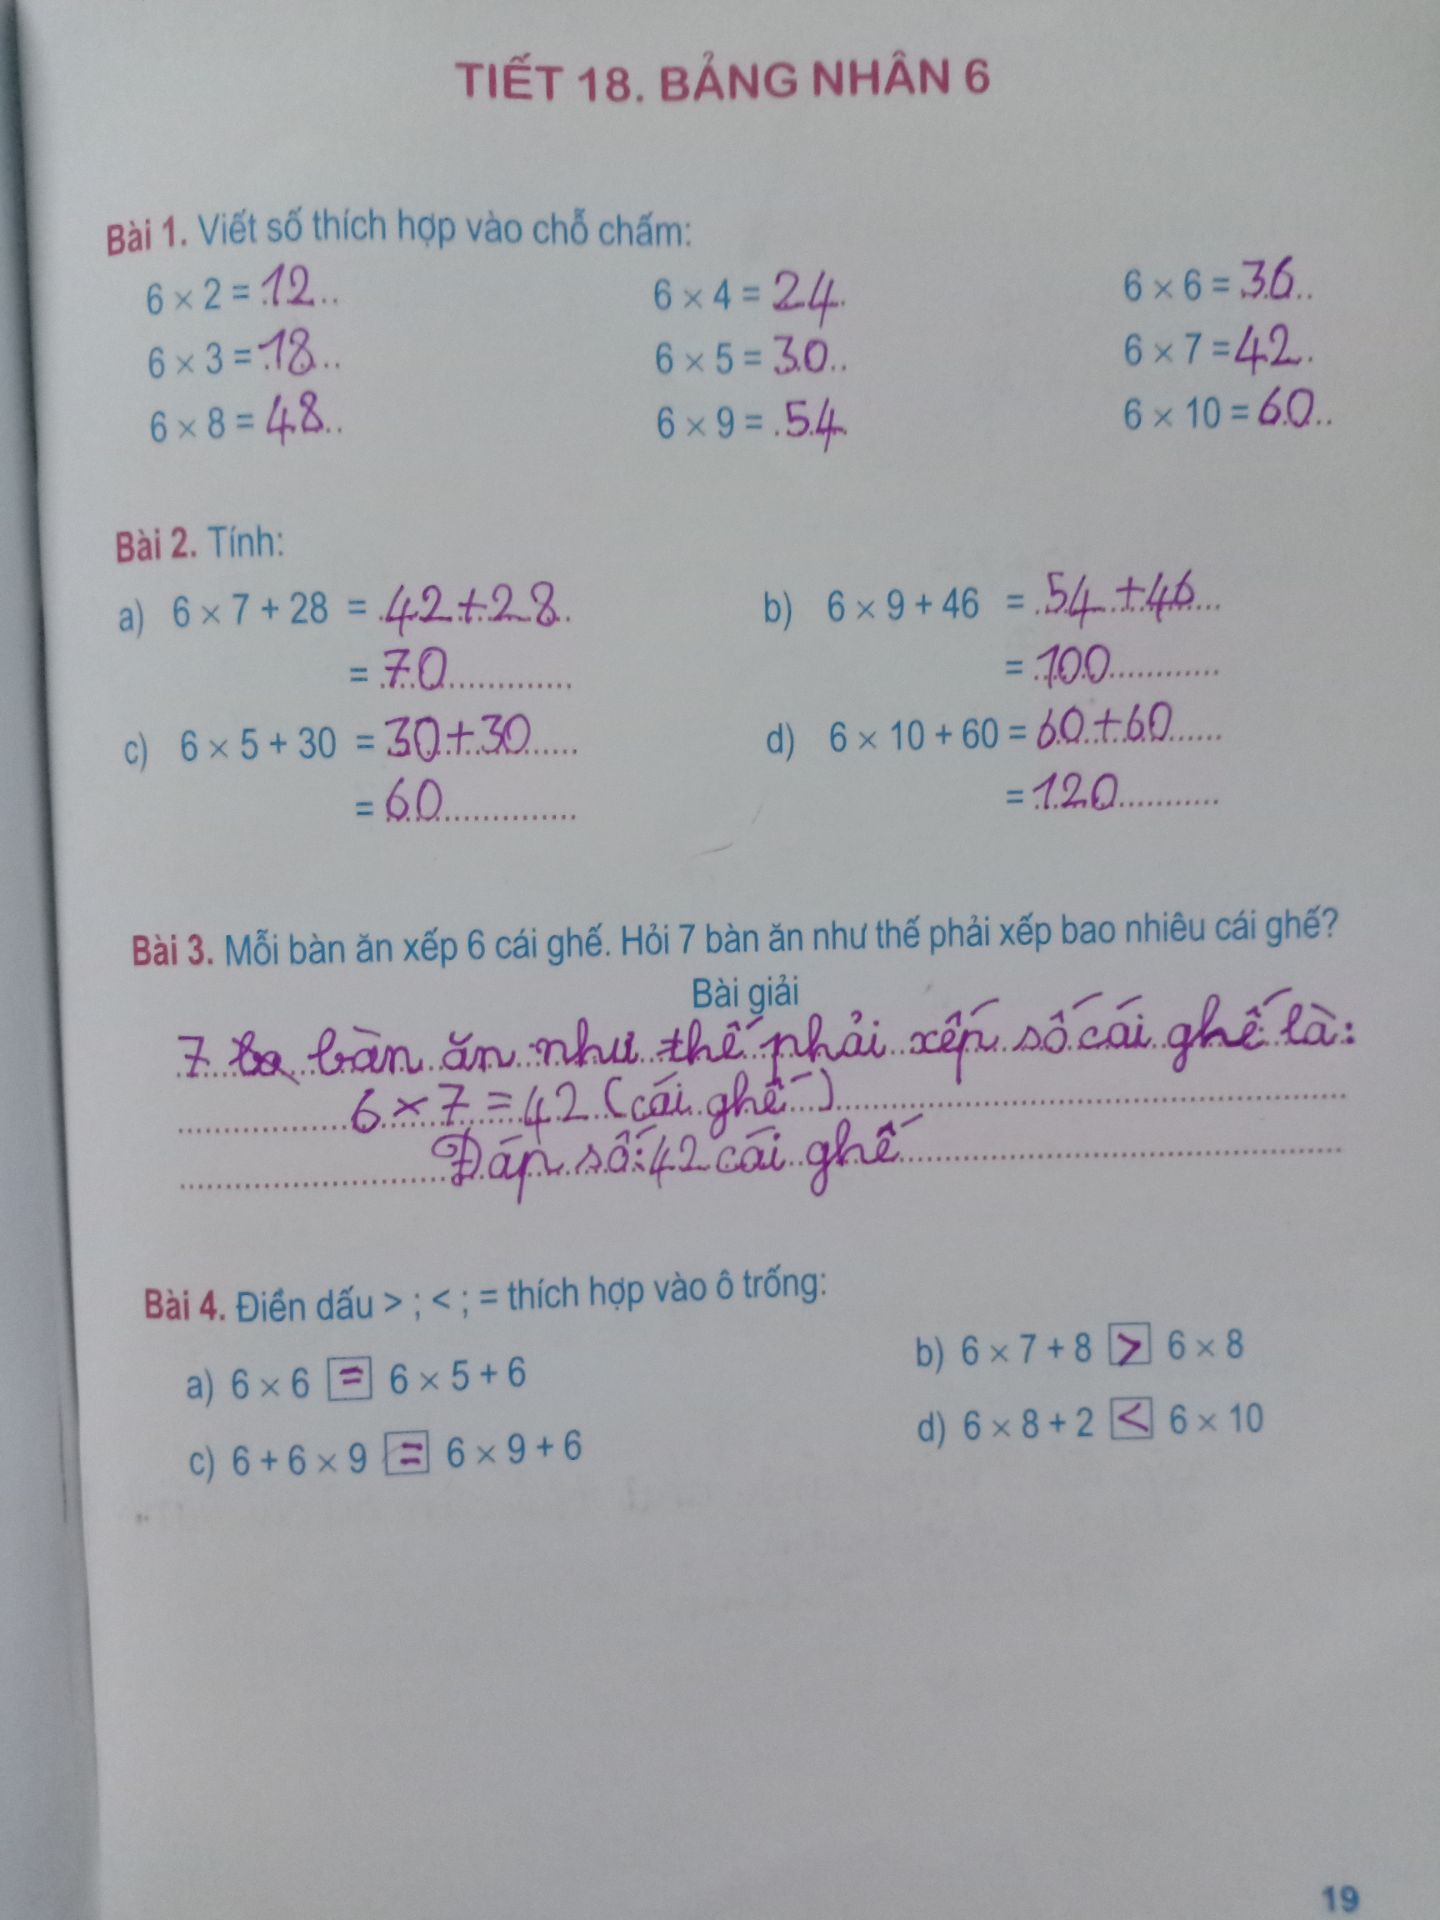 TIẾT 18. BẢNG NHÂN 6
Bài 1. Viết số thích hợp vào chỗ chấm:
6 × 2 = 12 6 × 4 = 24 6 × 6 = 36
6 × 3 = 18 6 × 5 = 30 6 × 7 = 42
6 × 8 = 48 6 × 9 = 54 6 × 10 = 60
Bài 2. Tính:
a) 6 × 7 + 28 = 42 + 28 b) 6 × 9 + 46 = 54 + 46
= 70 = 100
c) 6 × 5 + 30 = 30 + 30 d) 6 × 10 + 60 = 60 + 60
= 60 = 120
Bài 3. Mỗi bàn ăn xếp 6 cái ghế. Hỏi 7 bàn ăn như thế phải xếp bao nhiêu cái ghế?
Bài giải
7 bàn ăn như thế phải xếp số cái ghế là:
6 × 7 = 42 (cái ghế)
Đáp số: 42 cái ghế
Bài 4. Điền dấu > ; < ; = thích hợp vào ô trống:
a) 6 × 6 = 6 × 5 + 6 b) 6 × 7 + 8 > 6 × 8
c) 6 + 6 × 9 = 6 × 9 + 6 d) 6 × 8 + 2 < 6 × 10
19